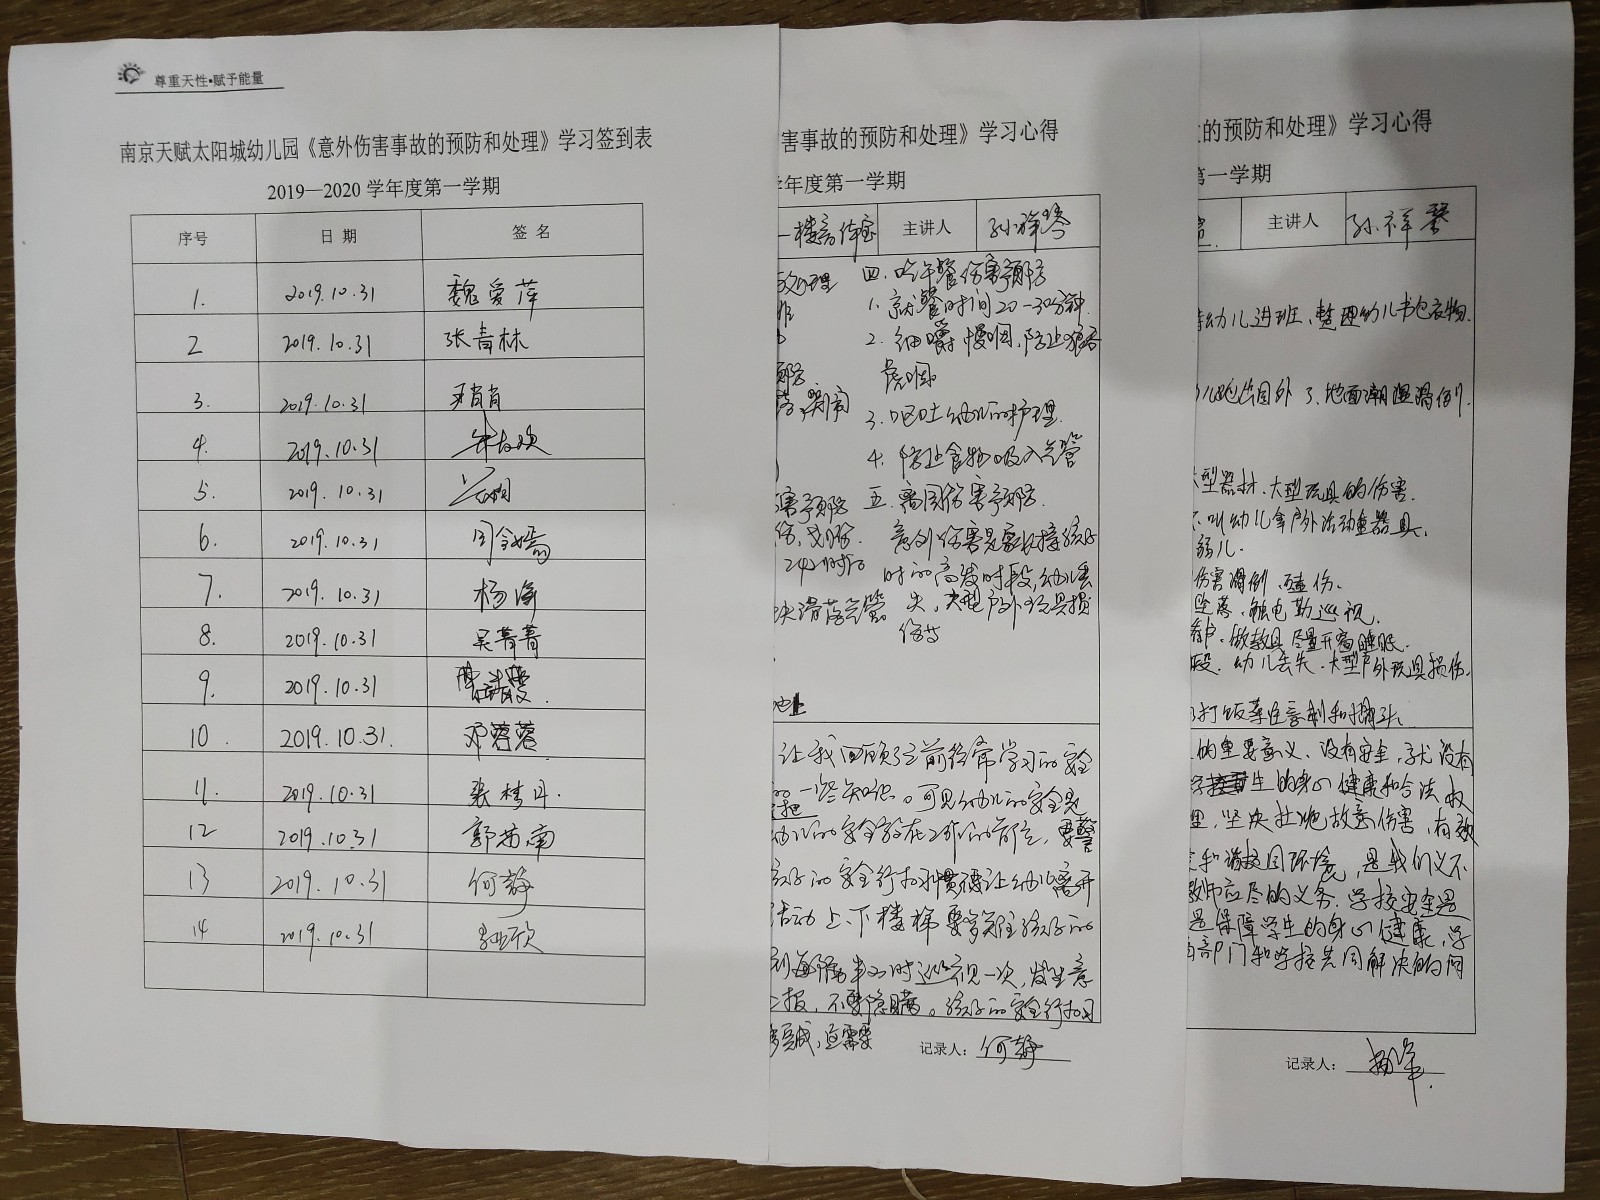 尊重天性•赋予能量
南京天赋太阳城幼儿园《意外伤害事故的预防和处理》学习签到表
2019—2020 学年度第一学期
序号 日 期 签 名
1. 2019.10.31 魏爱萍
2 2019.10.31 张青林
3. 2019.10.31 肖肖
4. 2019.10.31
5. 2019.10.31
6. 2019.10.31 周
7. 2019.10.31 杨
8. 2019.10.31 吴菁菁
9. 2019.10.31
10. 2019.10.31. 邓蓉蓉
11. 2019.10.31 张梦丹.
12 2019.10.31 郭苏南
13 2019.10.31 何静
14 2019.10.31
害事故的预防和处理》学习心得
学年度第一学期
一楼 主讲人 孙祥琴
处理
四. 吃午餐伤害预防
1. 就餐时间20-30分钟.
2. 细嚼慢咽,防止狼吞
虎咽
3. 呕吐幼儿的护理.
4. 防止食物吸入气管
害预防
五. 离园伤害预防.
意外伤害是家长接孩子
时的高发时段,幼儿丢
失,大型户外玩具损
伤等
块滑落气管
地上
让我回顾了前经常学习的安全
的一些知识。可见幼儿的安全是
幼儿的安全放在工作的首位,要警
孩子的安全行为习惯不要让幼儿离开
活动上、下楼梯要关注孩子的
半小时巡视一次,发生意
上报,不要隐瞒。孩子的安全行为习
记录人: 何静
的预防和处理》学习心得
第一学期
主讲人 孙祥琴
待幼儿进班、整理幼儿书包衣物.
儿跑出园外 3、地面潮湿滑倒.
大型器材、大型玩具的伤害.
叫幼儿拿户外活动重器具.
伤害滑倒、碰伤.
坠落、触电勤巡视.
做教具 尽量开窗睡眠.
段. 幼儿丢失、大型户外玩具损伤.
打饭菜注意
的重要意义、没有安全,就没有
生的身心健康和合法权
坚决杜绝故意伤害,有效
和谐校园环境,是我们义不
教师应尽的义务. 学校安全是
是保障学生的身心健康,学
部门和学校共同解决的问
记录人: